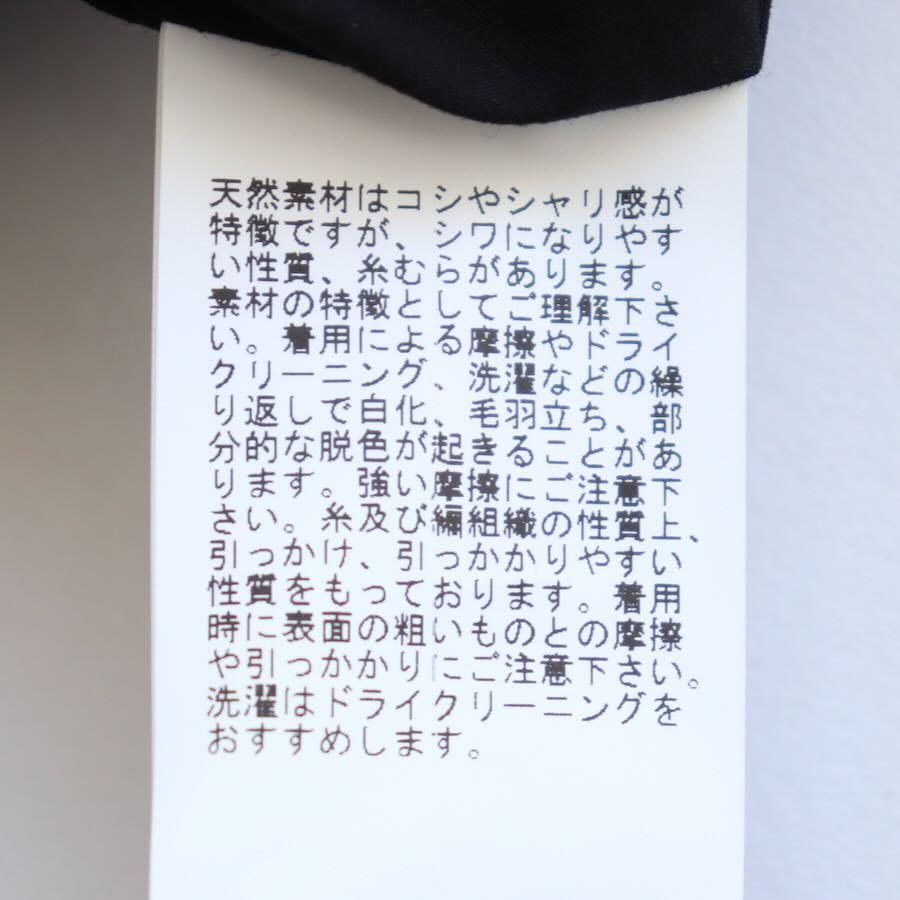 天然素材はコシやシャリ感が
特徴ですが、シワになりやす
い性質、糸むらがあります。
素材の特徴としてご理解下さ
い。着用による摩擦やドライ
クリーニング、洗濯などの繰
り返しで白化、毛羽立ち、部
分的な脱色が起きることがあ
ります。強い摩擦にご注意下
さい。糸及び編組織の性質上、
引っかけ、引っかかりやすい
性質をもっております。着用
時に表面の粗いものとの摩擦
や引っかかりにご注意下さい。
洗濯はドライクリーニングを
おすすめします。